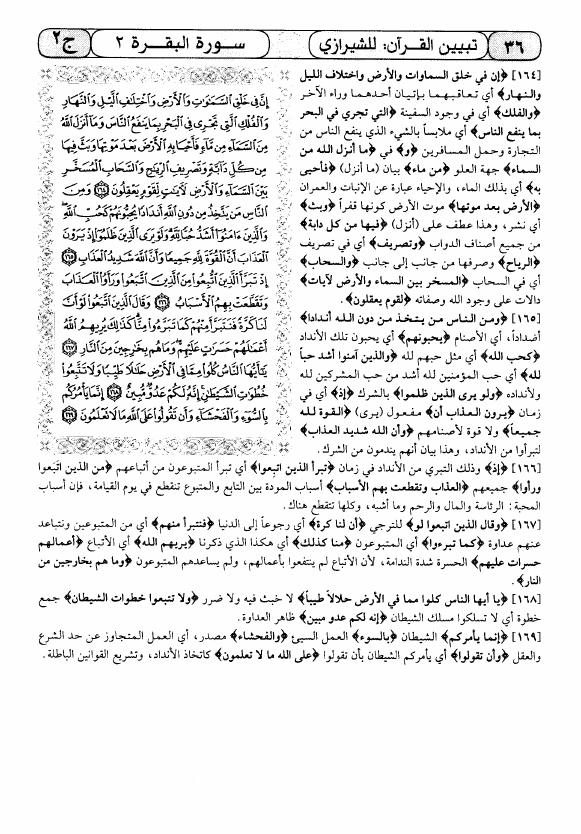 ٣٦
تبيين القرآن: للشيرازي
سـورة البـقـرة ٢
ج٢
[١٦٤] ﴿إن في خلق السماوات والأرض واختلاف الليل
والنهار﴾ أي تعاقبهما بإتيان أحدهما وراء الآخر
﴿والفلك﴾ أي في وجود السفينة ﴿التي تجري في البحر
بما ينفع الناس﴾ أي ملابساً بالشيء الذي ينفع الناس من
التجارة وحمل المسافرين ﴿و﴾ في ﴿ما أنزل الله من
السماء﴾ جهة العلو ﴿من ماء﴾ بيان (ما أنزل) ﴿فأحيى
به﴾ أي بذلك الماء، والإحياء عبارة عن الإنبات والعمران
﴿الأرض بعد موتها﴾ موت الأرض كونها قفراً ﴿وبث﴾
أي نشر، وهذا عطف على (أنزل) ﴿فيها من كل دابة﴾
من جميع أصناف الدواب ﴿وتصريف﴾ أي في تصريف
﴿الرياح﴾ وصرفها من جانب إلى جانب ﴿والسحاب﴾
أي في السحاب ﴿المسخر بين السماء والأرض لآيات﴾
دالات على وجود الله وصفاته ﴿لقوم يعقلون﴾.
[١٦٥] ﴿ومن الناس من يتخذ من دون الله أنداداً﴾
أضداداً، أي الأصنام ﴿يحبونهم﴾ أي يحبون تلك الأنداد
﴿كحب الله﴾ أي مثل حبهم لله ﴿والذين آمنوا أشد حباً
لله﴾ أي حب المؤمنين لله أشد من حب المشركين لله
ولأنداده ﴿ولو يرى الذين ظلموا﴾ بالشرك ﴿إذ﴾ أي في
زمان ﴿يرون العذاب أن﴾ مفعول (يرى) ﴿القوة لله
جميعاً﴾ ولا قوة لأصنامهم ﴿وأن الله شديد العذاب﴾
لتبرأوا من الأنداد، وهذا بيان أنهم يندمون من الشرك.
إِنَّ فِي خَلْقِ السَّمَٰوَٰتِ وَالْأَرْضِ وَاخْتِلَٰفِ الَّيْلِ وَالنَّهَارِ
وَالْفُلْكِ الَّتِي تَجْرِي فِي الْبَحْرِ بِمَا يَنفَعُ النَّاسَ وَمَا أَنزَلَ اللَّهُ
مِنَ السَّمَاءِ مِن مَّاءٍ فَأَحْيَا بِهِ الْأَرْضَ بَعْدَ مَوْتِهَا وَبَثَّ فِيهَا
مِن كُلِّ دَابَّةٍ وَتَصْرِيفِ الرِّيَٰحِ وَالسَّحَابِ الْمُسَخَّرِ
بَيْنَ السَّمَاءِ وَالْأَرْضِ لَءَايَٰتٍ لِّقَوْمٍ يَعْقِلُونَ ١٦٤ وَمِنَ
النَّاسِ مَن يَتَّخِذُ مِن دُونِ اللَّهِ أَندَادًا يُحِبُّونَهُمْ كَحُبِّ اللَّهِ
وَالَّذِينَ ءَامَنُوا أَشَدُّ حُبًّا لِّلَّهِ وَلَوْ يَرَى الَّذِينَ ظَلَمُوا إِذْ يَرَوْنَ
الْعَذَابَ أَنَّ الْقُوَّةَ لِلَّهِ جَمِيعًا وَأَنَّ اللَّهَ شَدِيدُ الْعَذَابِ ١٦٥
إِذْ تَبَرَّأَ الَّذِينَ اتُّبِعُوا مِنَ الَّذِينَ اتَّبَعُوا وَرَأَوُا الْعَذَابَ
وَتَقَطَّعَتْ بِهِمُ الْأَسْبَابُ ١٦٦ وَقَالَ الَّذِينَ اتَّبَعُوا لَوْ أَنَّ
لَنَا كَرَّةً فَنَتَبَرَّأَ مِنْهُمْ كَمَا تَبَرَّءُوا مِنَّا كَذَٰلِكَ يُرِيهِمُ اللَّهُ
أَعْمَٰلَهُمْ حَسَرَٰتٍ عَلَيْهِمْ وَمَا هُم بِخَٰرِجِينَ مِنَ النَّارِ ١٦٧
يَٰأَيُّهَا النَّاسُ كُلُوا مِمَّا فِي الْأَرْضِ حَلَٰلًا طَيِّبًا وَلَا تَتَّبِعُوا
خُطُوَٰتِ الشَّيْطَٰنِ إِنَّهُ لَكُمْ عَدُوٌّ مُّبِينٌ ١٦٨ إِنَّمَا يَأْمُرُكُم
بِالسُّوءِ وَالْفَحْشَاءِ وَأَن تَقُولُوا عَلَى اللَّهِ مَا لَا تَعْلَمُونَ ١٦٩
[١٦٦] ﴿إذ﴾ وذلك التبري من الأنداد في زمان ﴿تبرأ الذين اتبعوا﴾ أي تبرأ المتبوعون من أتباعهم ﴿من الذين اتبعوا
ورأوا﴾ جميعهم ﴿العذاب وتقطعت بهم الأسباب﴾ أسباب المودة بين التابع والمتبوع تنقطع في يوم القيامة، فإن أسباب
المحبة: الرئاسة والمال والرحم وما أشبه، وكلها تنقطع هناك.
[١٦٧] ﴿وقال الذين اتبعوا لو﴾ للترجي ﴿أن لنا كرة﴾ أي رجوعاً إلى الدنيا ﴿فنتبرأ منهم﴾ أي من المتبوعين ونتباعد
عنهم عداوة ﴿كما تبرءوا﴾ أي المتبوعون ﴿منا كذلك﴾ أي هكذا الذي ذكرنا ﴿يريهم الله﴾ أي الأتباع ﴿أعمالهم
حسرات عليهم﴾ الحسرة شدة الندامة، لأن الأتباع لم ينتفعوا بأعمالهم، ولم يساعدهم المتبوعون ﴿وما هم بخارجين من
النار﴾.
[١٦٨] ﴿يا أيها الناس كلوا مما في الأرض حلالاً طيباً﴾ لا خبث فيه ولا ضرر ﴿ولا تتبعوا خطوات الشيطان﴾ جمع
خطوة أي لا تسلكوا مسلك الشيطان ﴿إنه لكم عدو مبين﴾ ظاهر العداوة.
[١٦٩] ﴿إنما يأمركم﴾ الشيطان ﴿بالسوء﴾ العمل السيئ ﴿والفحشاء﴾ مصدر، أي العمل المتجاوز عن حد الشرع
والعقل ﴿وأن تقولوا﴾ أي يأمركم الشيطان بأن تقولوا ﴿على الله ما لا تعلمون﴾ كاتخاذ الأنداد، وتشريع القوانين الباطلة.